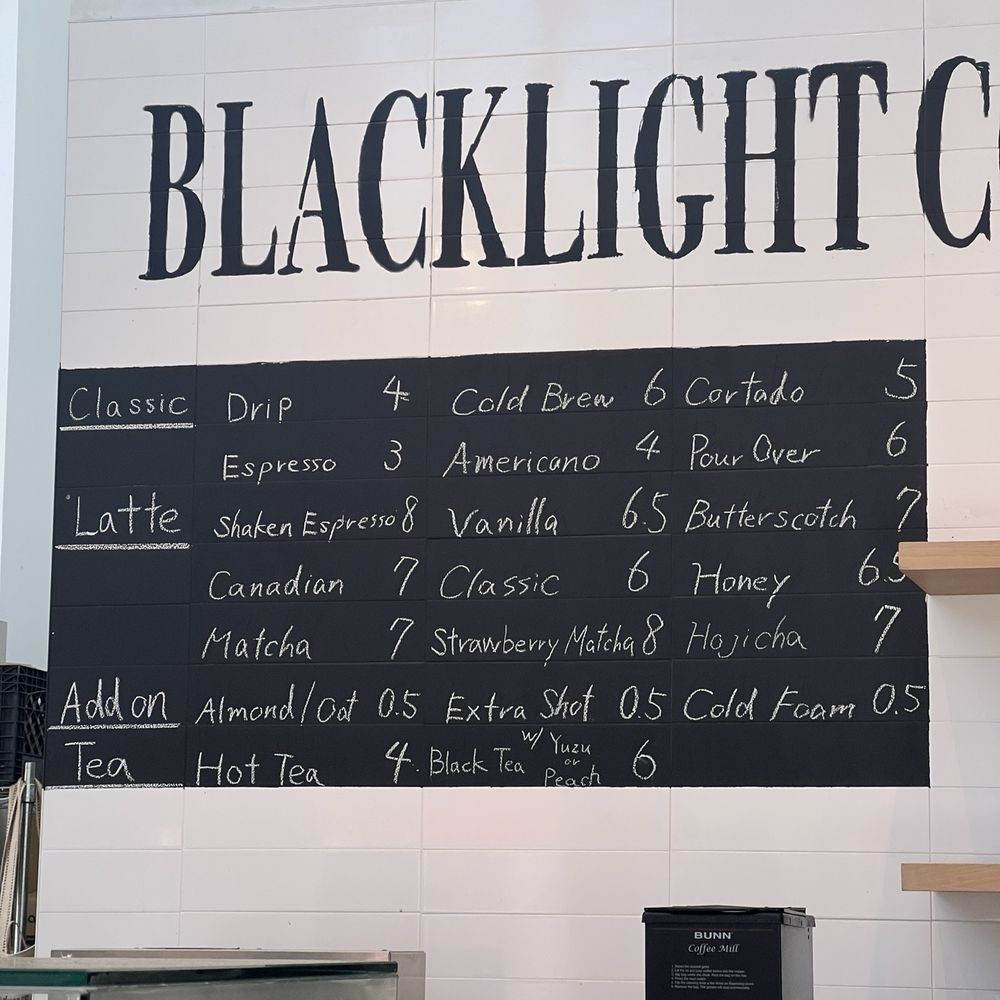 BLACKLIGHT C
Classic Drip 4 Cold Brew 6 Cortado 5
Espresso 3 Americano 4 Pour Over 6
Latte Shaken Espresso 8 Vanilla 6.5 Butterscotch 7
Canadian 7 Classic 6 Honey 6.5
Matcha 7 Strawberry Matcha 8 Hojicha 7
Add on Almond/Oat 0.5 Extra Shot 0.5 Cold Foam 0.5
Tea Hot Tea 4. Black Tea w/ Yuzu or Peach 6
BUNN
Coffee Mill